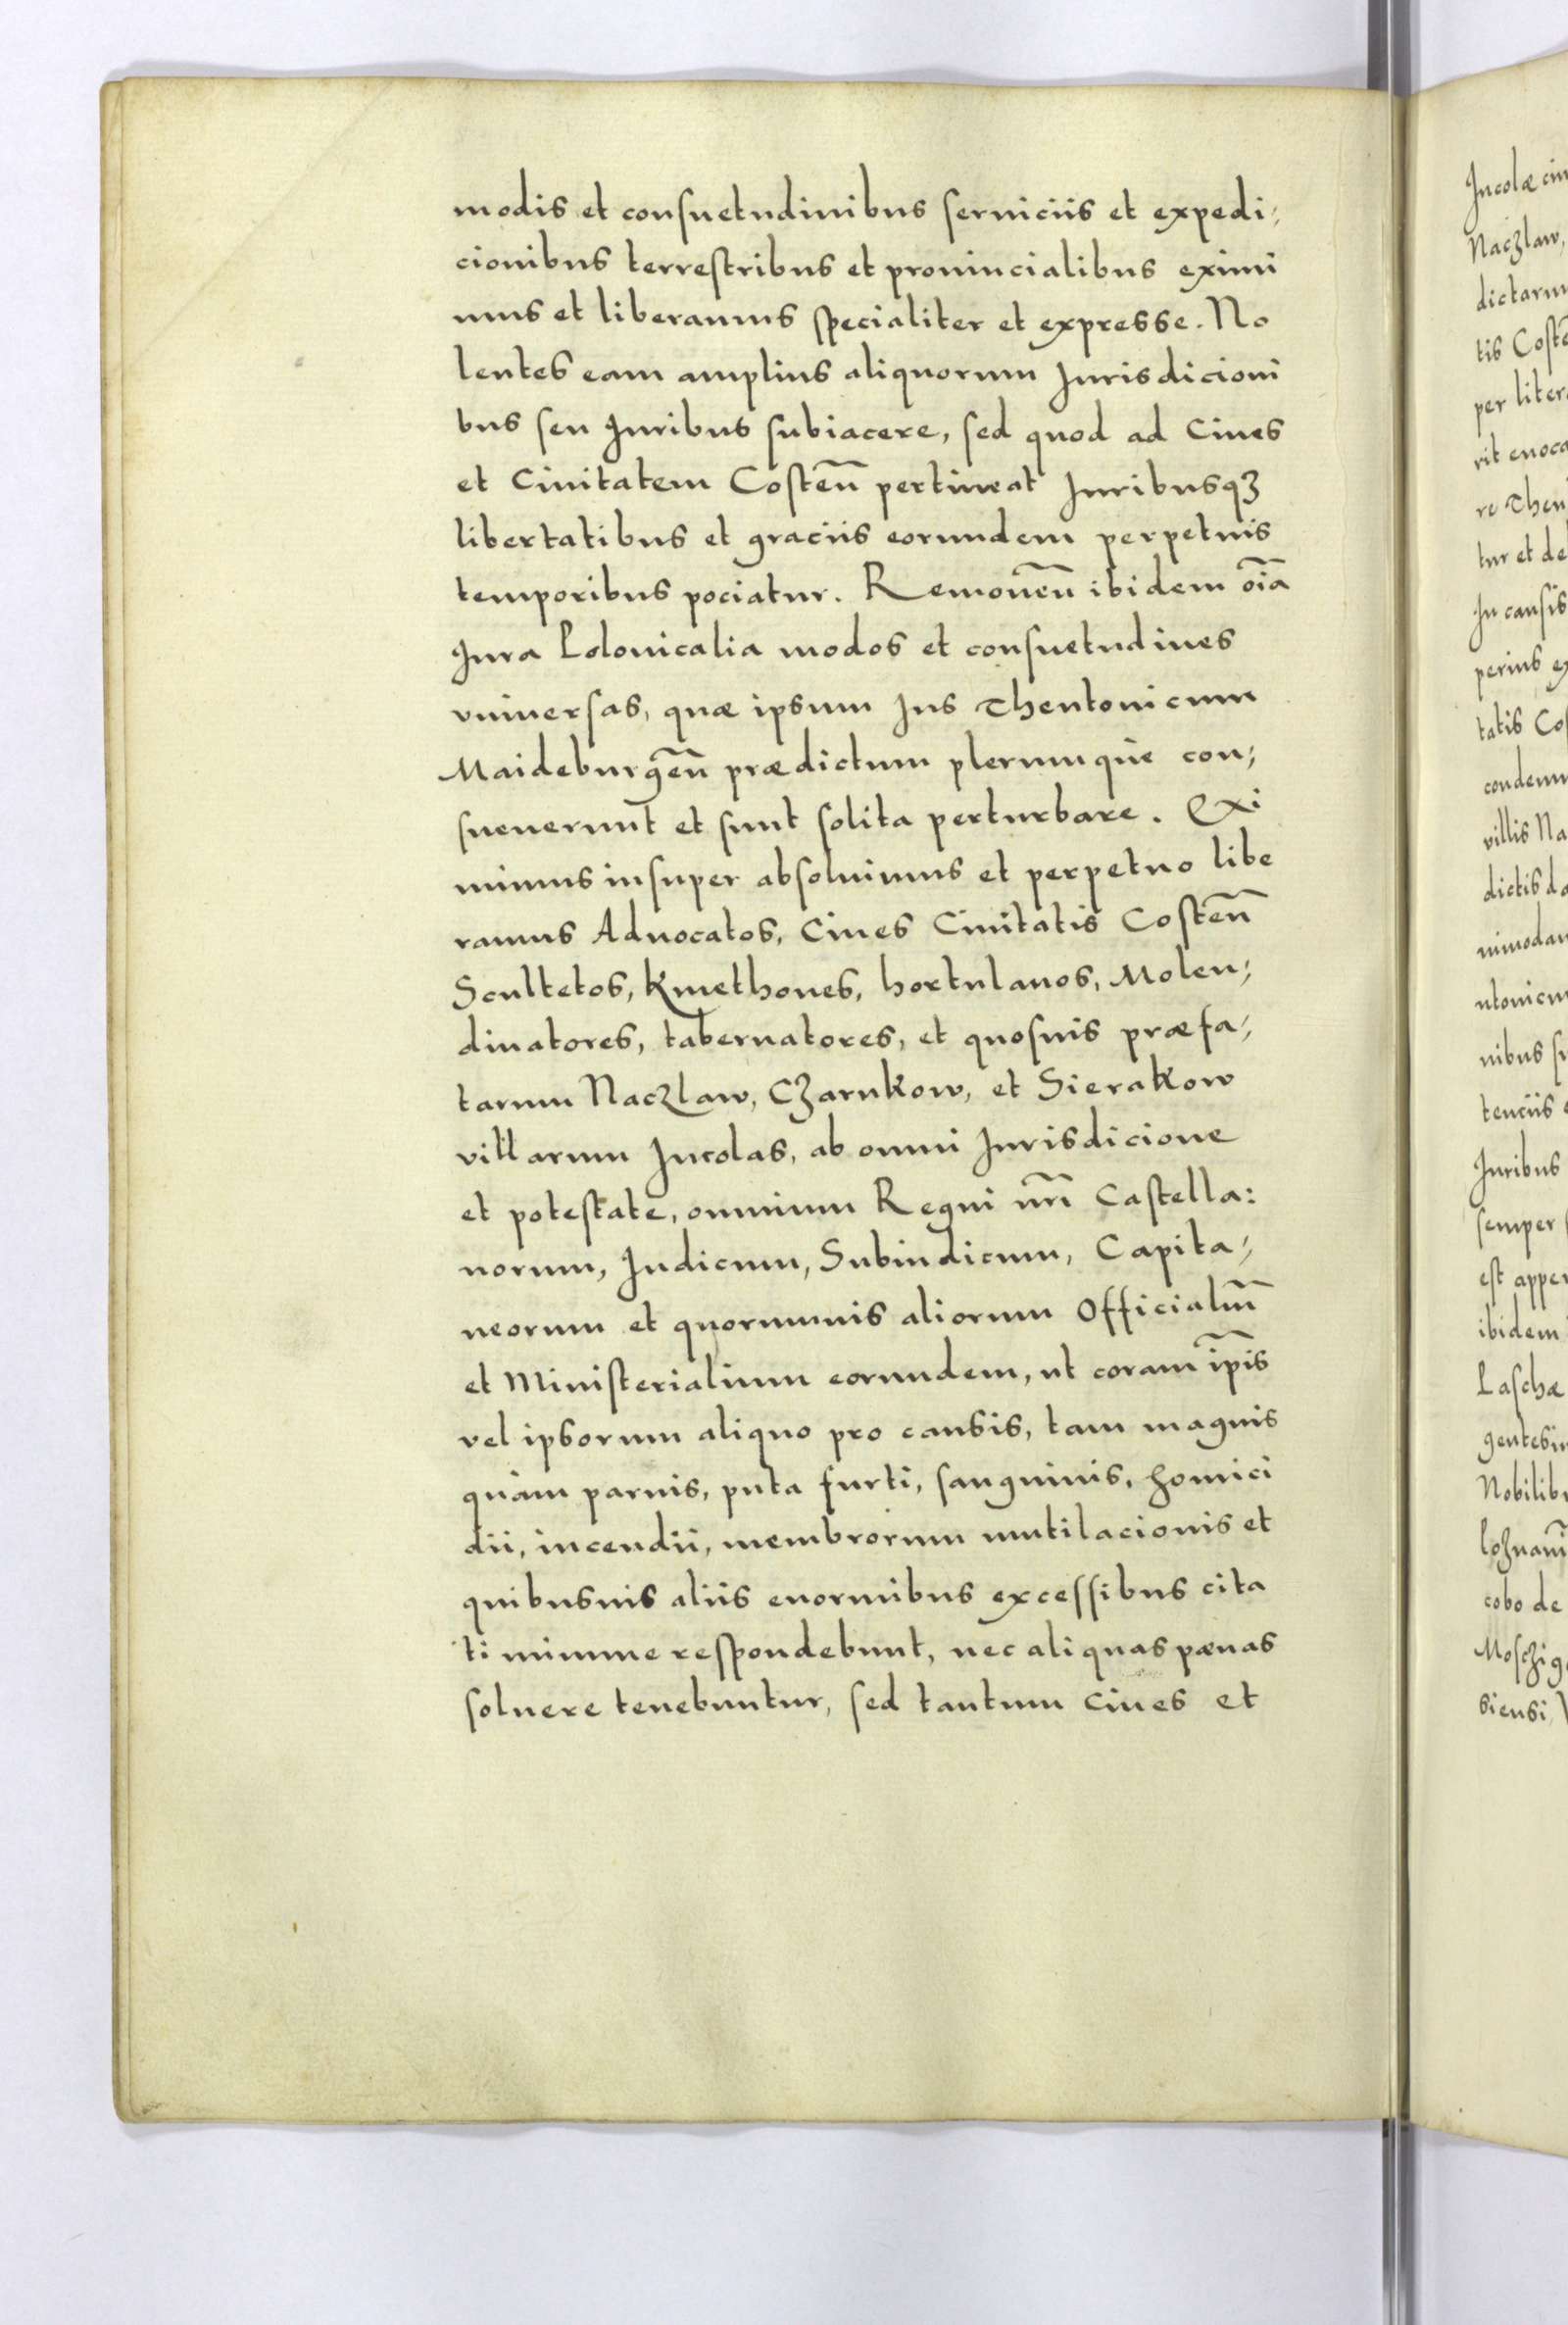 modis et consuetudinibus seruiciis et expedi-
cionibus terrestribus et prouincialibus eximi
mus et liberamus specialiter et expresse. No
lentes eam amplius aliquorum Jurisdicioni
bus seu Juribus subiacere, sed quod ad Ciues
et Ciuitatem Costen̄ pertineat Juribusqꝫ
libertatibus et graciis eorundem perpetuis
temporibus pociatur. Remouen̄ ibidem oi͞a
Jura Polonicalia modos et consuetudines
vniuersas, quæ ipsum Jus Theutonicum
Maideburgen̄ prædictum plerumque con-
sueuerunt et sunt solita perturbare. Exi
mimus insuper absoluimus et perpetuo libe
ramus Aduocatos, Ciues Ciuitatis Costen̄
Scultetos, Kmethones, hortulanos, Molen-
dinatores, tabernatores, et quosuis præfa-
tarum Naczlaw, Czarnkow, et Sierakow
villarum Incolas, ab omni Jurisdicione
et potestate, omnium Regni nr̄i Castella:
norum, Judicum, Subiudicum, Capita-
neorum et quorumuis aliorum Officialiū
et Ministerialium eorundem, ut coram ip̄is
vel ipsorum aliquo pro causis, tam magnis
quàm paruis, puta furti, sanguinis, homici
dii, incendii, membrorum mutilacionis et
quibusuis aliis enormibus excessibus cita
ti minime respondebunt, nec aliquas pænas
soluere tenebuntur, sed tantum Ciues et
Incolæ
Naczlaw,
tis
per
re
tur et de
In causis
tatis
villis
dictis
nibus
Juribus
semper
est
ibidem
Laschæ
cobo de